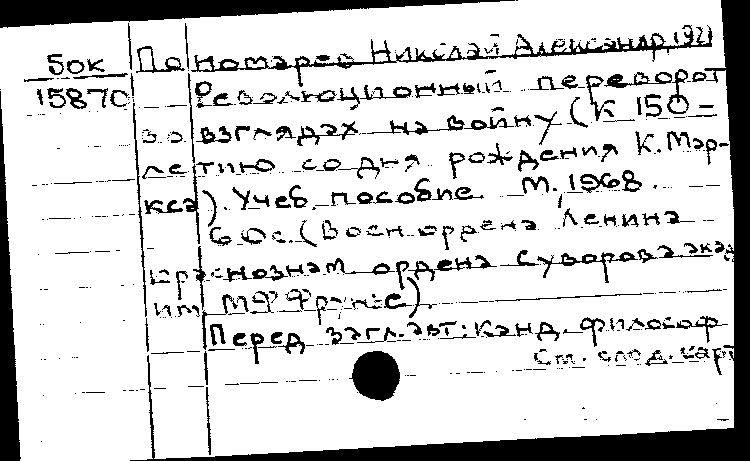 50к Пономарев Николай Александр, 1921
15870 Революционный переворот
во взглядах на войну (К 150-
летию со дня рождения К. Мар-
кса). Учеб. пособие. М., 1968.
60с. (Воен. ордена Ленина
краснознам. ордена Суворова акад
им. М Ф Фрунзе).
Перед загл. авт: канд. философ
См. след. карт